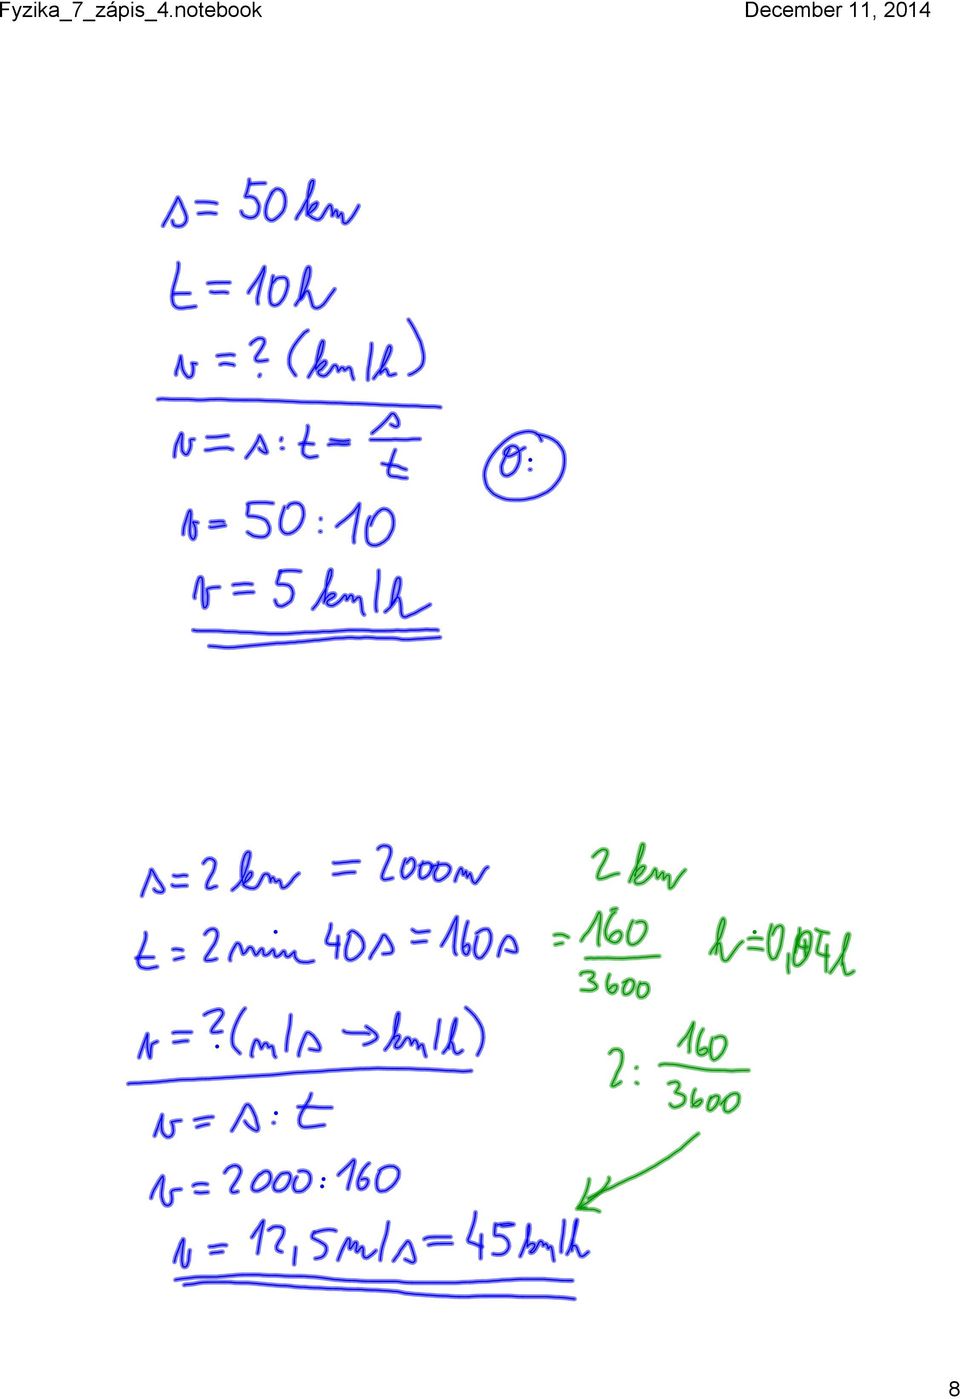 Fyzika_7_zápis_4.notebook December 11, 2014
s = 50 km
t = 10 h
v = ? (km/h)
v = s : t = s/t
O:
v = 50 : 10
v = 5 km/h
s = 2 km = 2000 m 2 km
t = 2 min 40 s = 160 s = 160/3600 h
v = ? (m/s → km/h)
2 : 160/3600
v = s : t
v = 2000 : 160
v = 12,5 m/s = 45 km/h
8